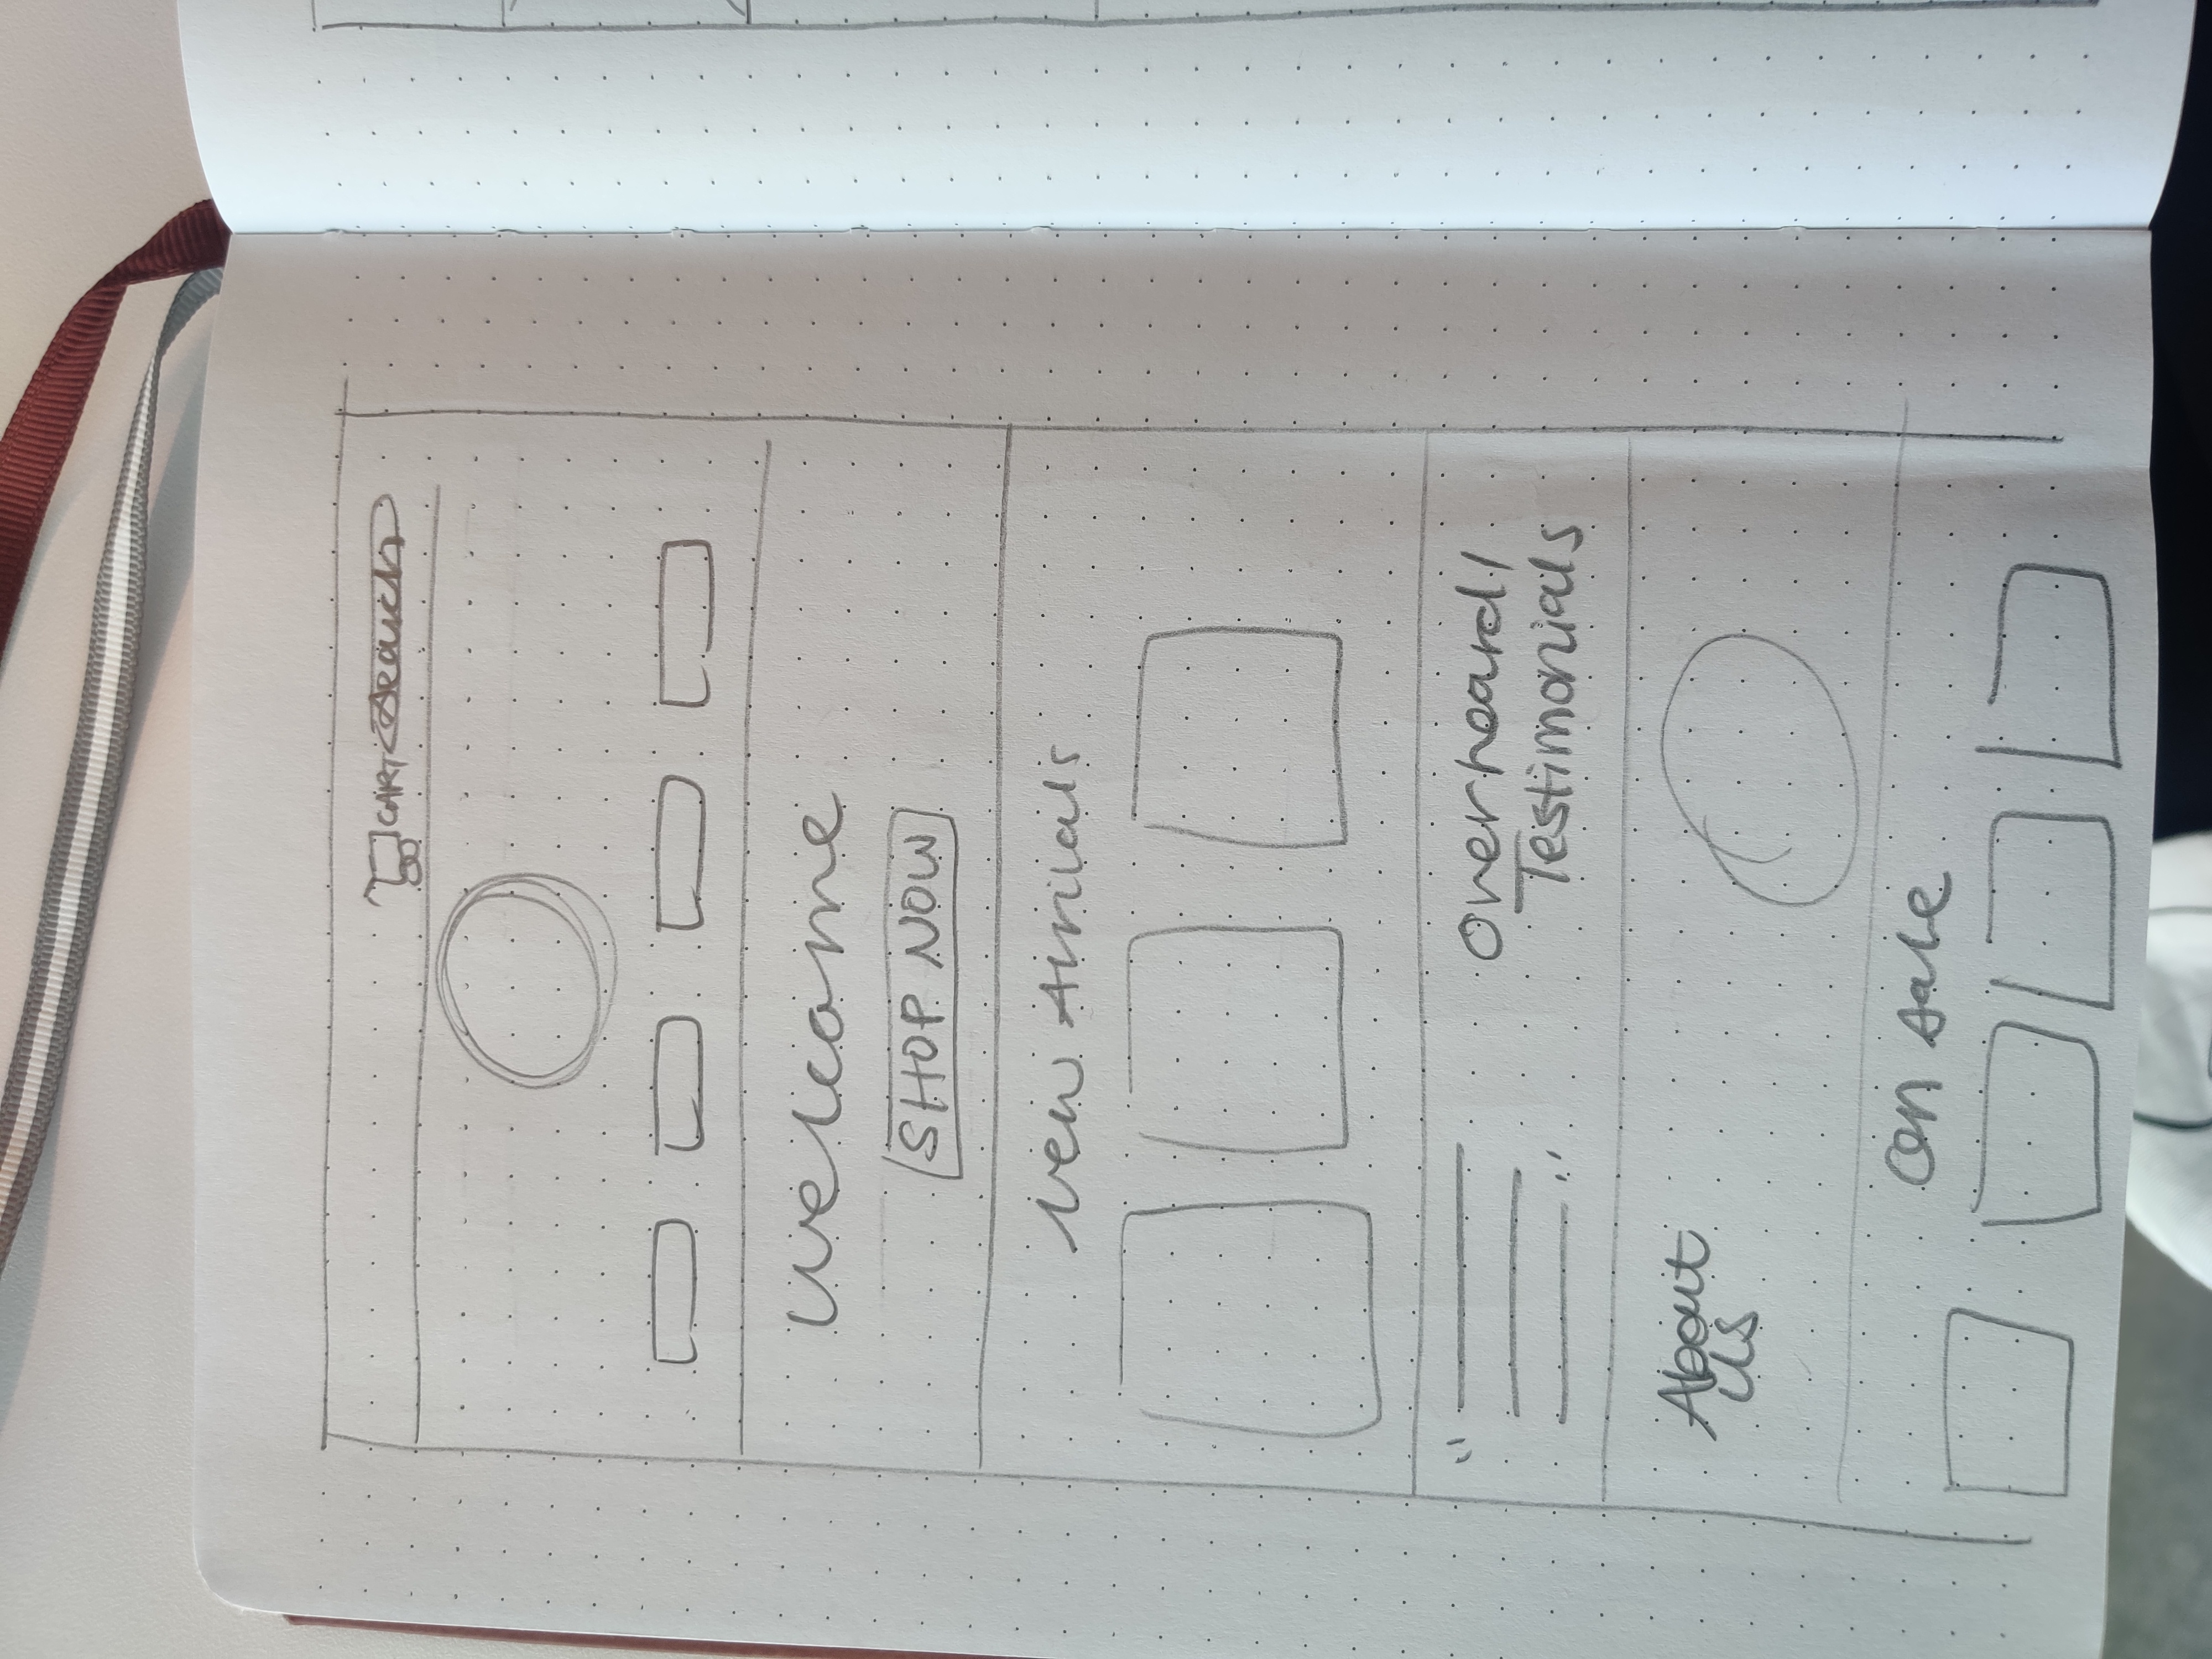 CART Search
Welcome
SHOP NOW
New Arrivals
" "
Overheard/
Testimonials
About
Us
On Sale